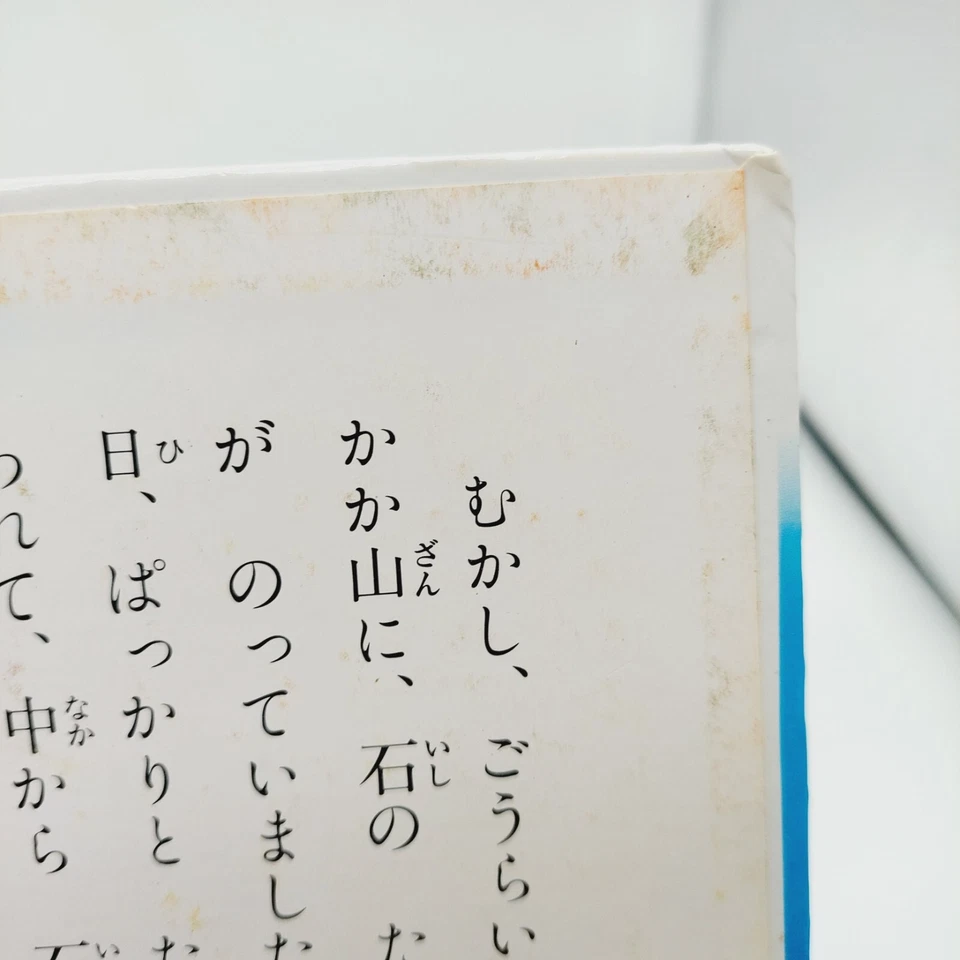 むかし、ごうらい
かか山に、石の た
が のっていまし た
日、ぱっかりと
われて、中から
ざん
いし
ひ
なか